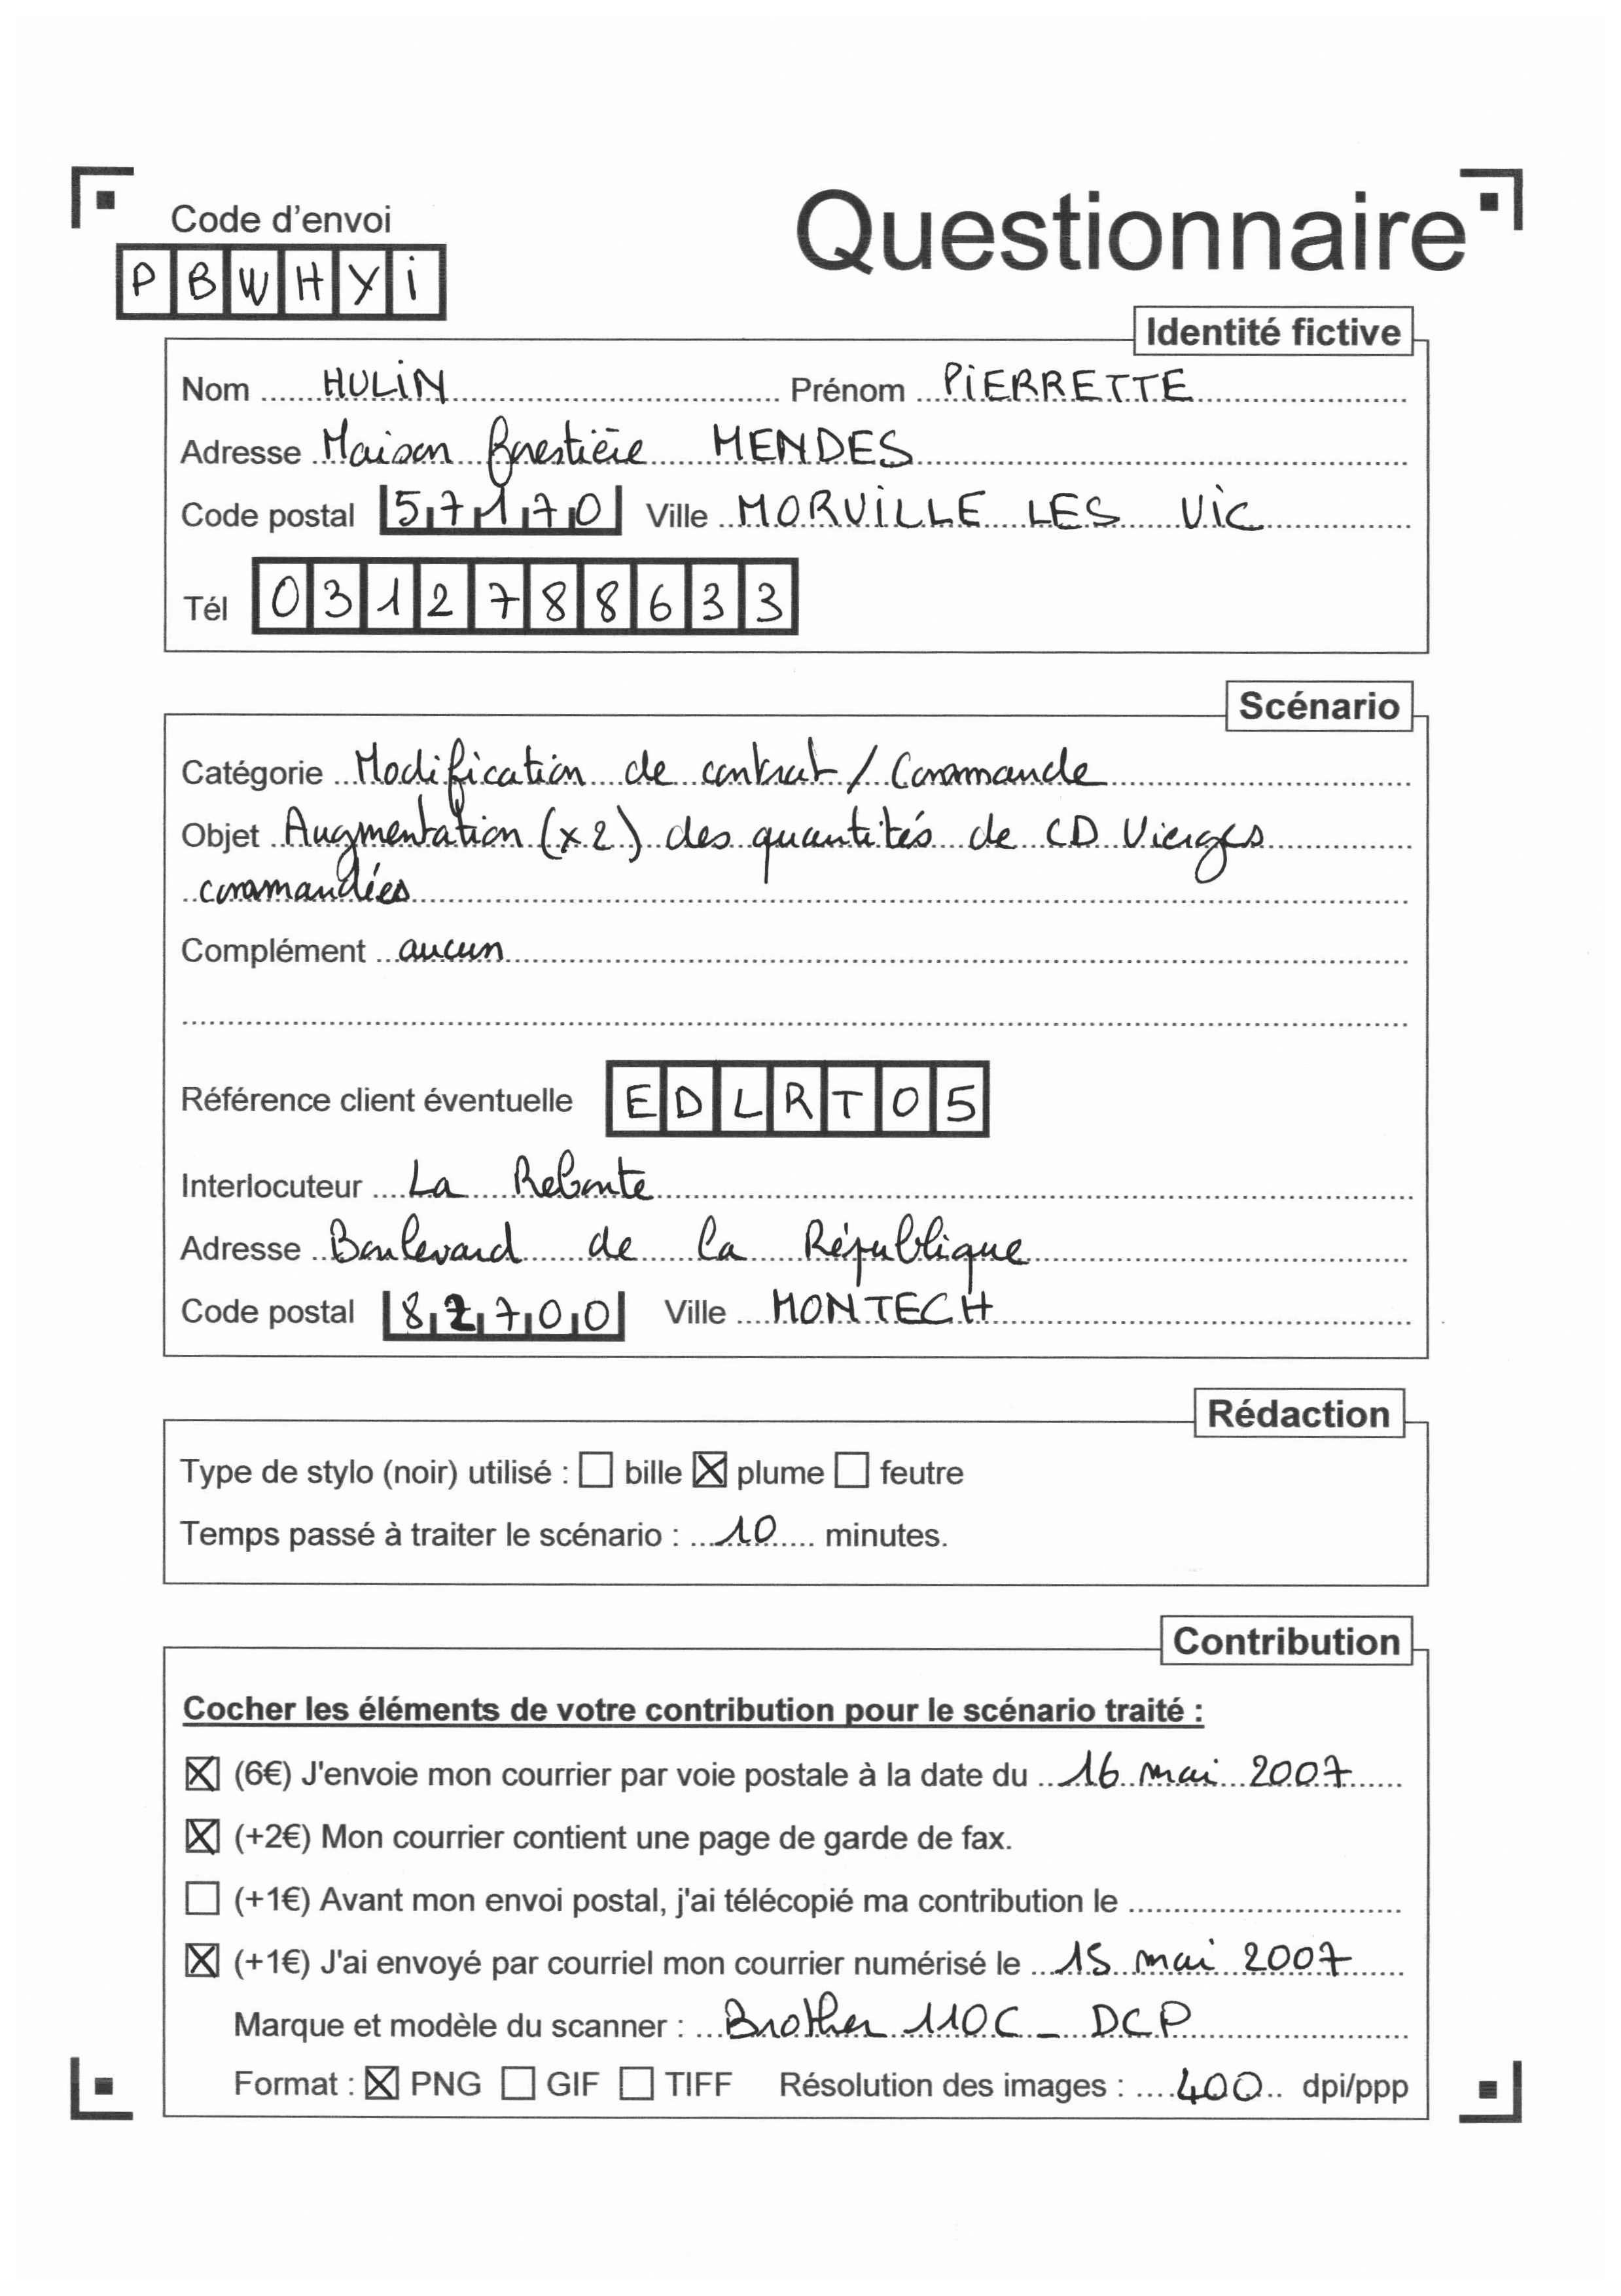 Code d'envoi
Questionnaire
PBWHYi
Identité fictive
Nom HULiN Prénom PiERRETTE
Adresse Maison forestière MENDES
Code postal 57170 Ville MORViLLE LES ViC
Tél 0312788633
Scénario
Catégorie Modification de contrat / Commande
Objet Augmentation (x2) des quantités de CD Vierges
commandées
Complément aucun
Référence client éventuelle EDLRT05
Interlocuteur La Redoute
Adresse Boulevard de la République
Code postal 82700 Ville MONTECH
Rédaction
Type de stylo (noir) utilisé : ☐ bille ☒ plume ☐ feutre
Temps passé à traiter le scénario : 10 minutes.
Contribution
Cocher les éléments de votre contribution pour le scénario traité :
☒ (6€) J'envoie mon courrier par voie postale à la date du 16 mai 2007
☒ (+2€) Mon courrier contient une page de garde de fax.
☐ (+1€) Avant mon envoi postal, j'ai télécopié ma contribution le
☒ (+1€) J'ai envoyé par courriel mon courrier numérisé le 15 mai 2007
Marque et modèle du scanner : Brother 110C - DCP
Format : ☒ PNG ☐ GIF ☐ TIFF Résolution des images : 400 dpi/ppp